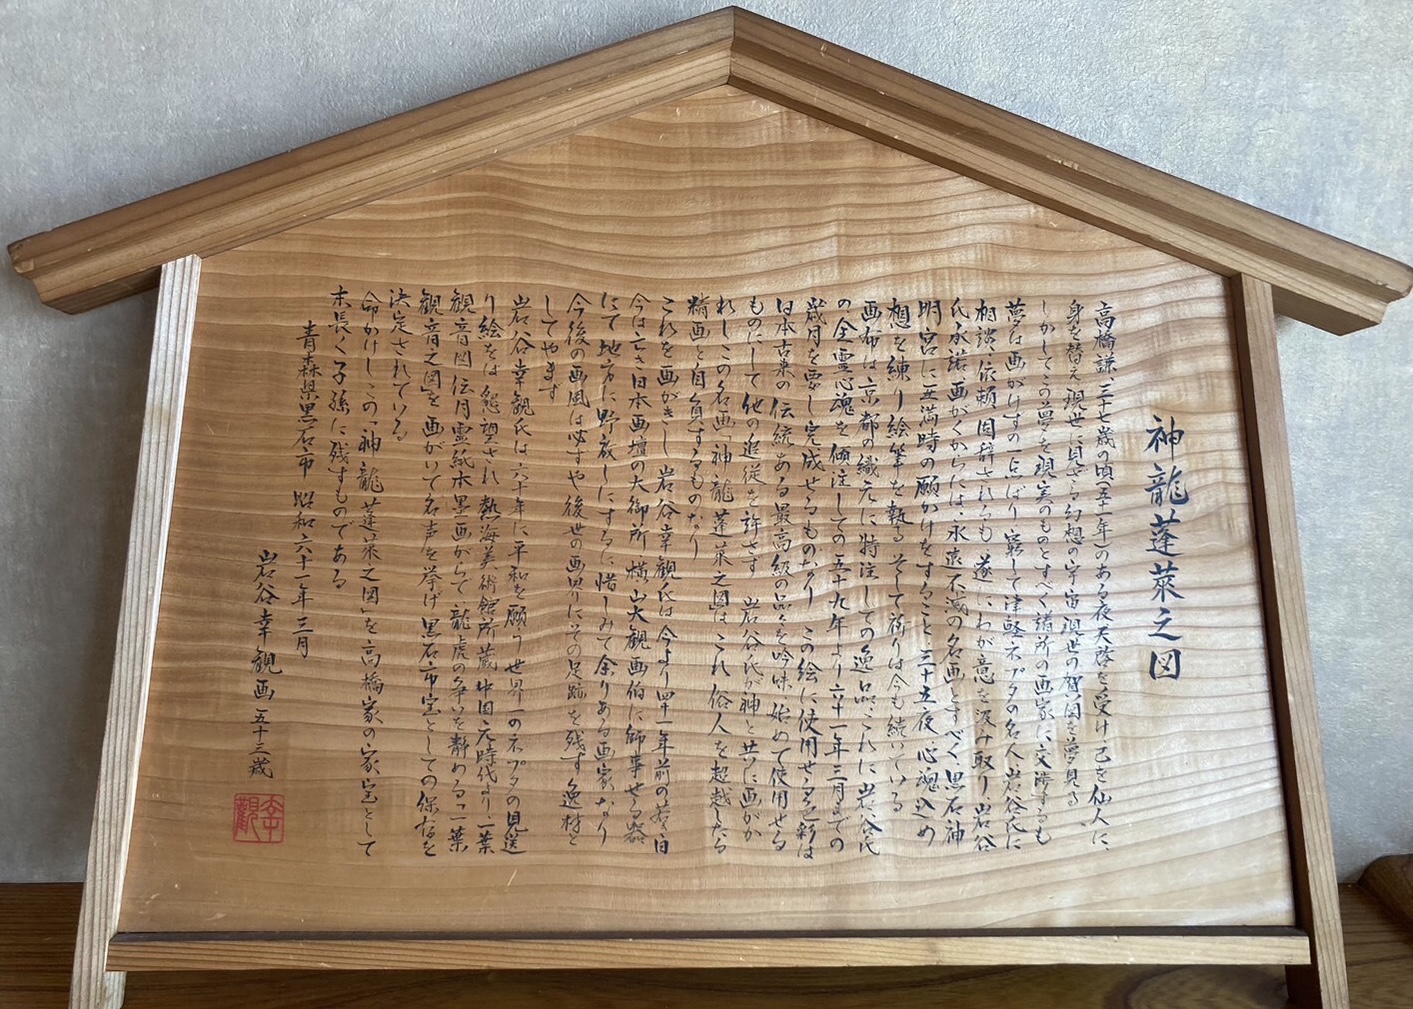 神龍蓬萊之図
高橋謙、三十七歳の頃(五十一年)のある夜天啓を受け 己を仙人に
身を替え現世に見ざる幻想の宇宙混世の賀図を夢見る
しかしてこの夢を現実のものとすべく諸所の画家に交渉するも
夢は画がけずの一点ばり 窮して津軽ネプタの名人岩谷氏に
相談、依頼、固辞されるも 遂にわが意を汲み取り 岩谷
氏承諾、画がくからには永遠不滅の名画とすべく黒石神
明宮に丑満時の願かけをすること三十五夜 心魂込め
想を練り絵筆を執る そして祈りは今も続いている
画布は京都の織元に特注しての逸品、これに岩谷氏
の全霊心魂を傾注しての五十九年より六十一年三月までの
歳月を要し完成せるものなり この絵に使用せる色彩は
日本古来の伝統ある最高級の品々を吟味 始めて使用せる
ものにして他の追従を許さず 岩谷氏が神と共に画がか
れしこの名画「神龍蓬萊之図」はこれ俗人を超越したる
精画と自負するものなり
これを画がきし岩谷幸観氏は今より四十一年前の若き日
今は亡き日本画壇の大御所 横山大観画伯に師事せる器
にて地方に野放しにするに惜しみて余りある画家なり
今後の画風は必ずや後世の画界にその足跡を残す逸材と
してやまず
岩谷幸観氏は六十年に平和を願う世界一のネプタの見送
り絵をは懇望され 熱海美術館所蔵中国元時代より一葉
観音図伝月霊紙水墨画がらて龍虎の争いを静める「一葉
観音之図」を画がいて名声を挙げ黒石市宝としての保存を
決定されている
命かけしこの「神龍蓬萊之図」を高橋家の家宝として
末長く子孫に残すものである
青森県黒石市 昭和六十一年三月
岩谷幸観画 五十三歳
幸觀